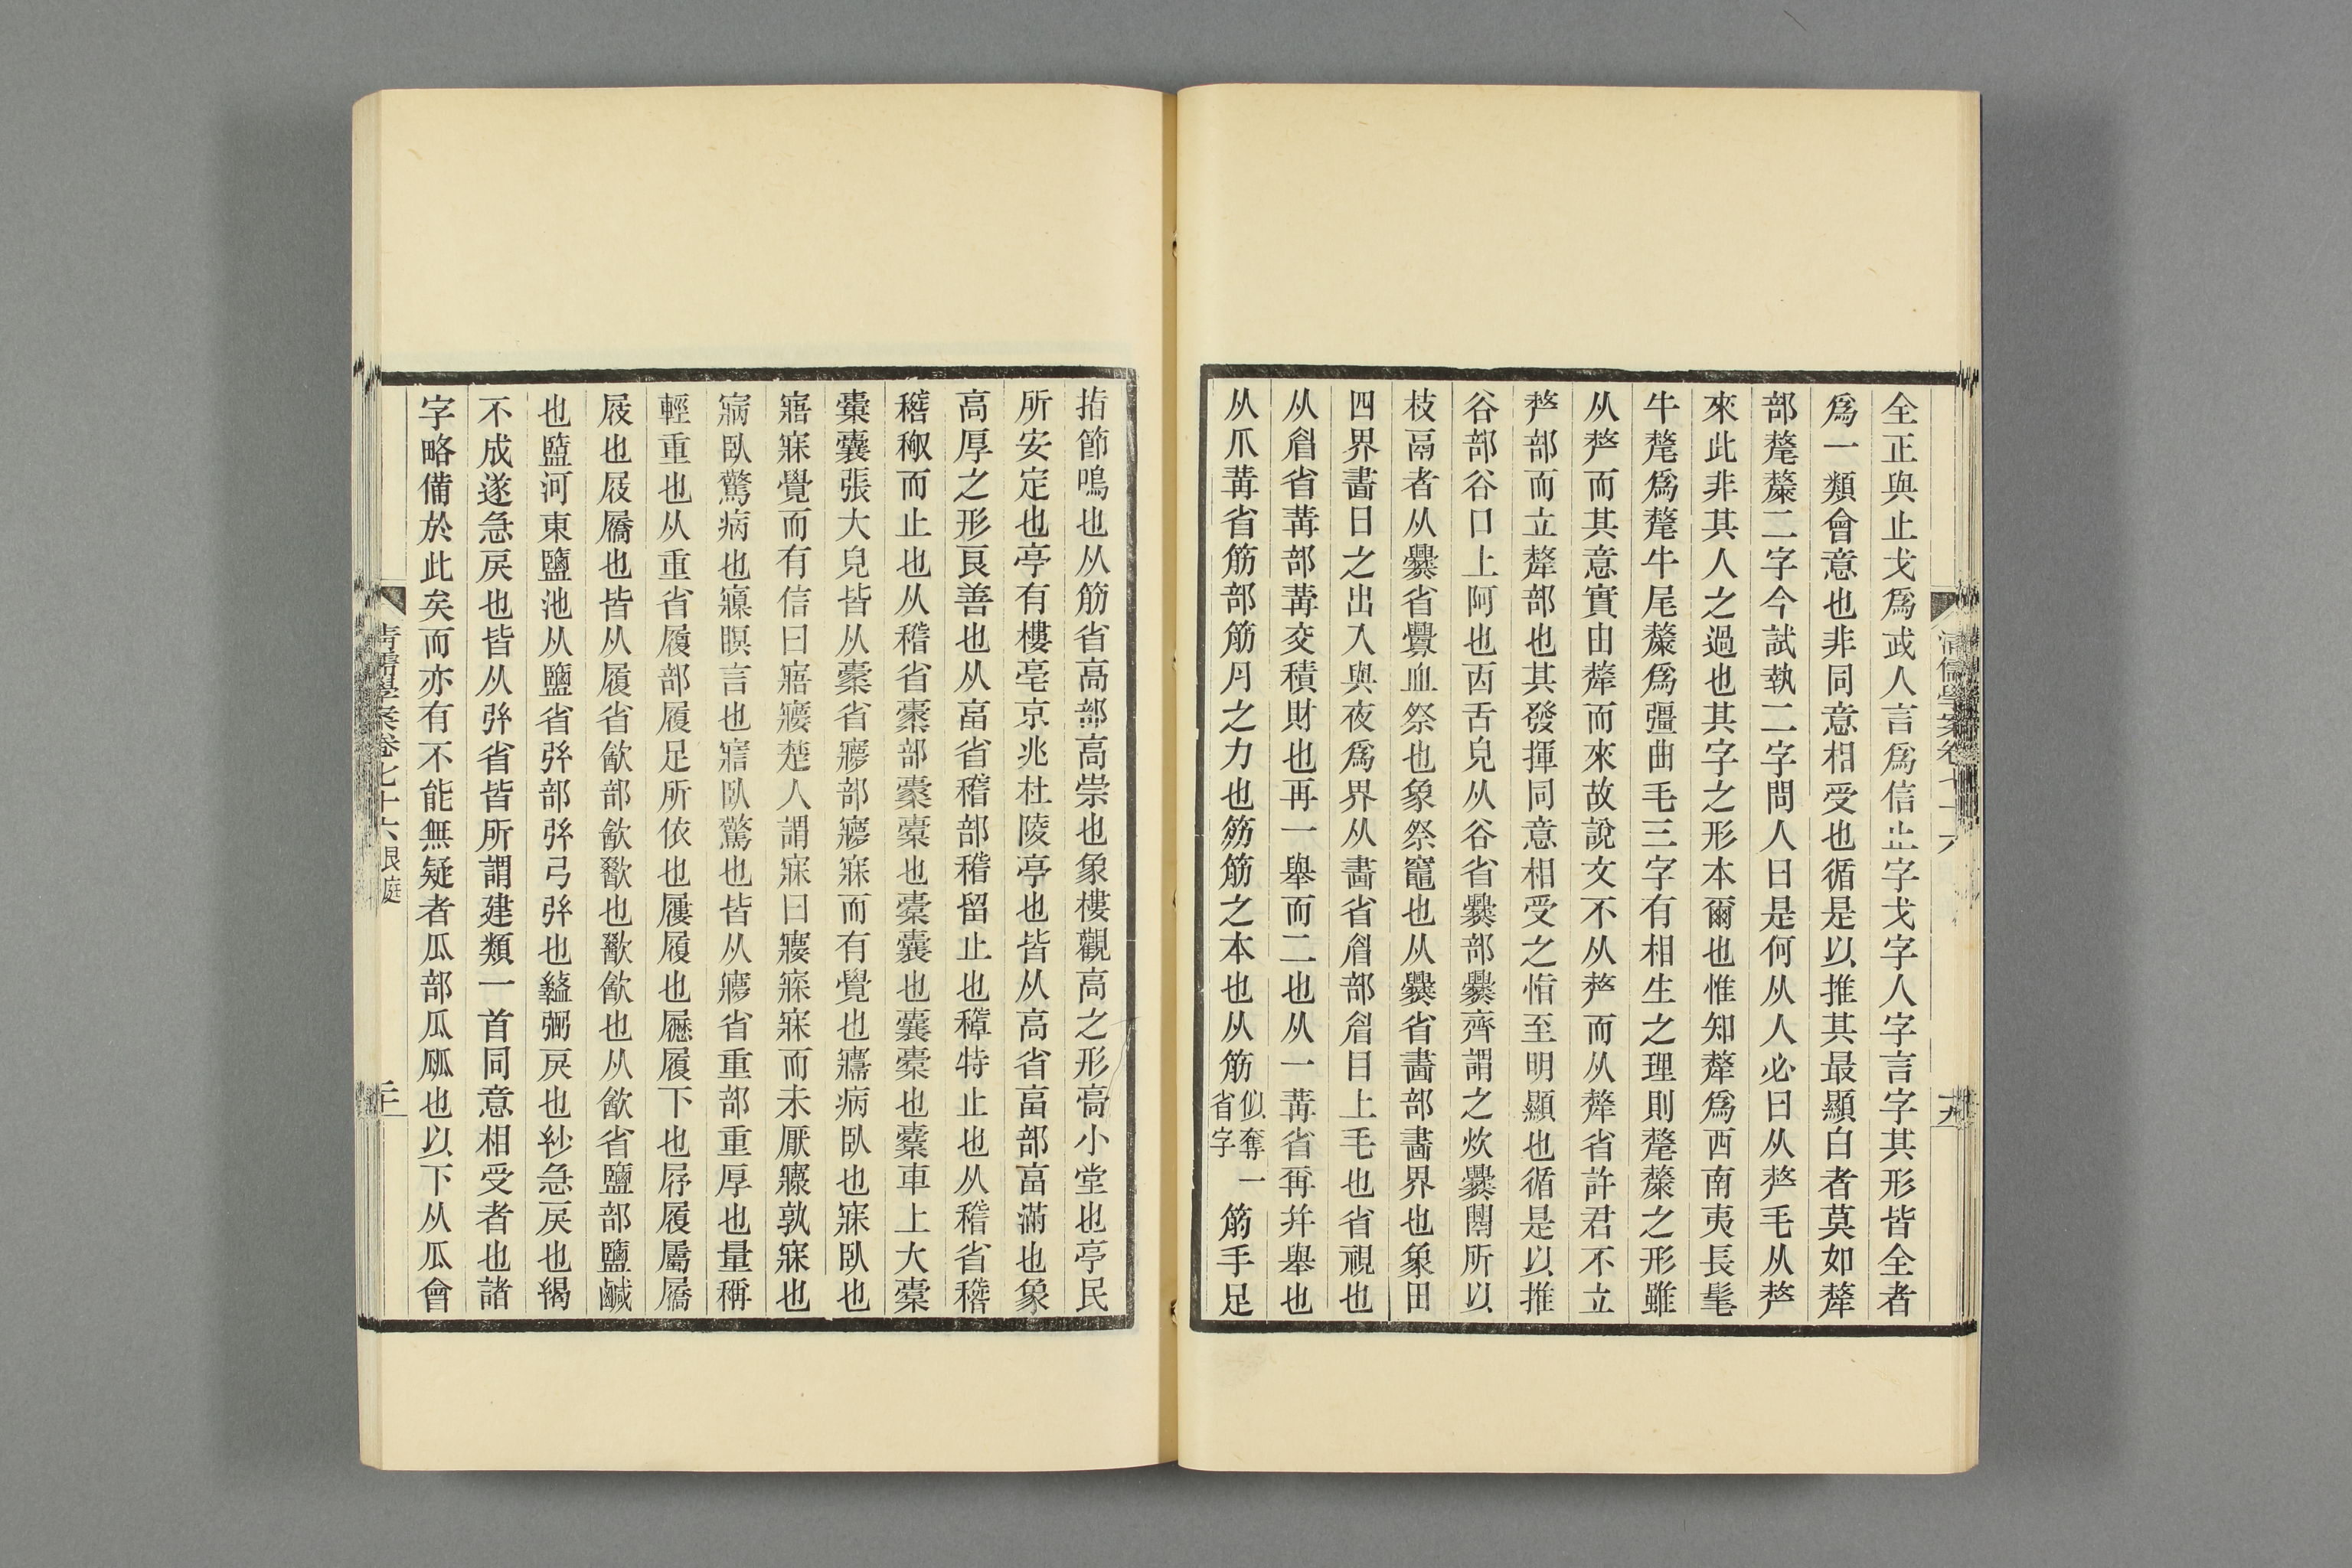 全正與止戈爲武人言爲信止字戈字人字言字其形皆全者
爲一類會意也非同意相受也循是以推其最顯白者莫如犛
部氂斄二字今試執二字問人曰是何从人必曰从𠩺毛从𠩺
來此非其人之過也其字之形本爾也惟知犛爲西南夷長髦
牛氂爲犛牛尾斄爲彊曲毛三字有相生之理則氂斄之形雖
从𠩺而其意實由犛而來故說文不从𠩺而从犛省許君不立
𠩺部而立犛部也其發揮同意相受之恉至明顯也循是以推
谷部谷口上阿也㐁舌皃从谷省爨部爨齊謂之炊爨䦧所以
枝鬲者从爨省釁血祭也象祭竈也从爨省畫部畫界也象田
四界晝日之出入與夜爲界从畫省眉部眉目上毛也省視也
从眉省冓部冓交積財也再一舉而二也从一冓省爯并舉也
从爪冓省筋部筋肉之力也笏筋之本也从筋似奪一省字筋手足
指節鳴也从筋省高部高崇也象樓觀高之形髙小堂也亭民
所安定也亭有樓亳京兆杜陵亭也皆从高省畗部畗滿也象
高厚之形良善也从畗省稽部稽留止也𥡴特止也从稽省𥡴
𥡴𥠻而止也从稽省㯻部㯻橐也橐囊也囊橐也櫜車上大橐
橐囊張大皃皆从㯻省㝱部㝱寐而有覺也㝲病臥也寐臥也
寤寐覺而有信曰寤㝥楚人謂寐曰㝥寐寐而未厭㝱孰寐也
寎臥驚病也寱瞑言也㝛臥驚也皆从㝱省重部重厚也量稱
輕重也从重省履部履足所依也屨履也屜履下也屐履屬屩
屐也屐屩也皆从履省㱃部㱃歠也歠㱃也从㱃省鹽部鹽鹹
也盬河東鹽池从鹽省弦部弦弓弦也盭弼戾也紗急戾也竭
不成遂急戾也皆从弦省皆所謂建類一首同意相受者也諸
字略備於此矣而亦有不能無疑者瓜部瓜㼌也以下从瓜會
清儒學案卷七十六
十九
清儒學案卷七十六 艮庭
二十